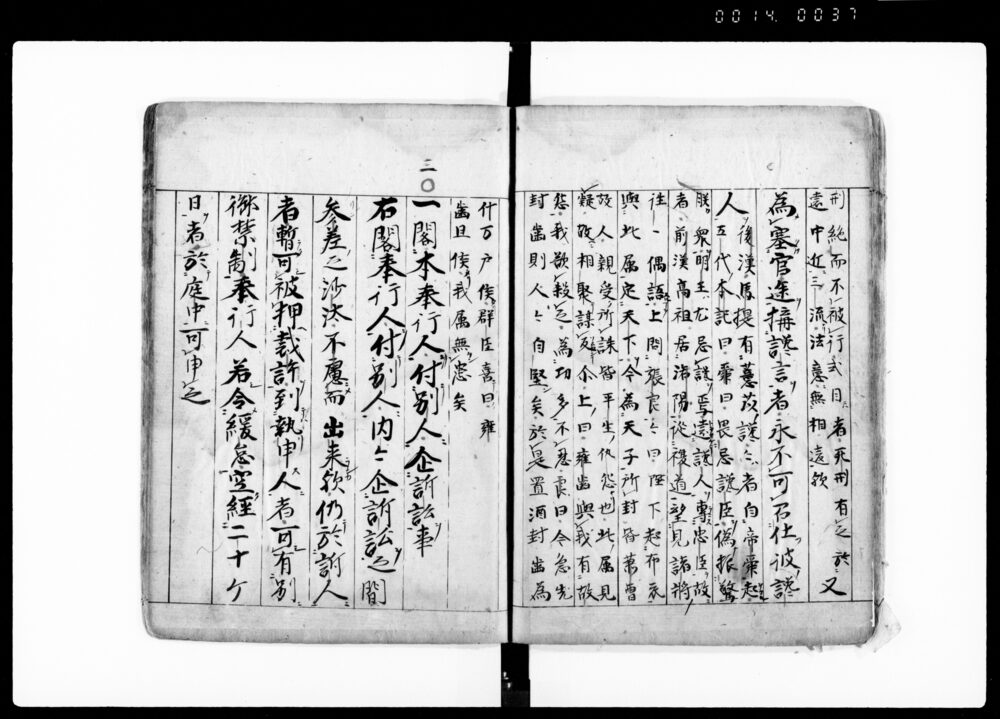 0014.0037
刑絶而不被行式目者死刑有之於
遠中近三流法意無相違歟 又
為塞官途構讒言者永不可召仕彼讒
人
後漢馬援有薏苡讒云々者自帝堯起
五代本記曰堯曰畏忌讒臣偽振驚
朕衆明王尤忌讒焉遠讒人専忠臣故
者前漢高祖居洛陽従複道望見諸将
往々偶語上問張良々曰陛下起布衣
与此属定天下今為天子所封皆蕭曹
故人親受所誅皆平生仇怨也此属見
疑故相聚謀反尒上曰雍歯与我有故
怨我欲殺之為功多不忍良曰今急先
封歯則人々自堅矣於是置酒封歯為
什方戸侯群臣喜曰雍
歯且侯我属無患矣
三〇
一閣本奉行人付別人企訴訟事
右閣奉行人付別人内々企訴訟之間
参差之沙汰不慮而出来歟仍於訴人
者暫可被押裁許到執申人者可有別
御禁制奉行人若令緩怠空経二十ケ
日者於庭中可申之